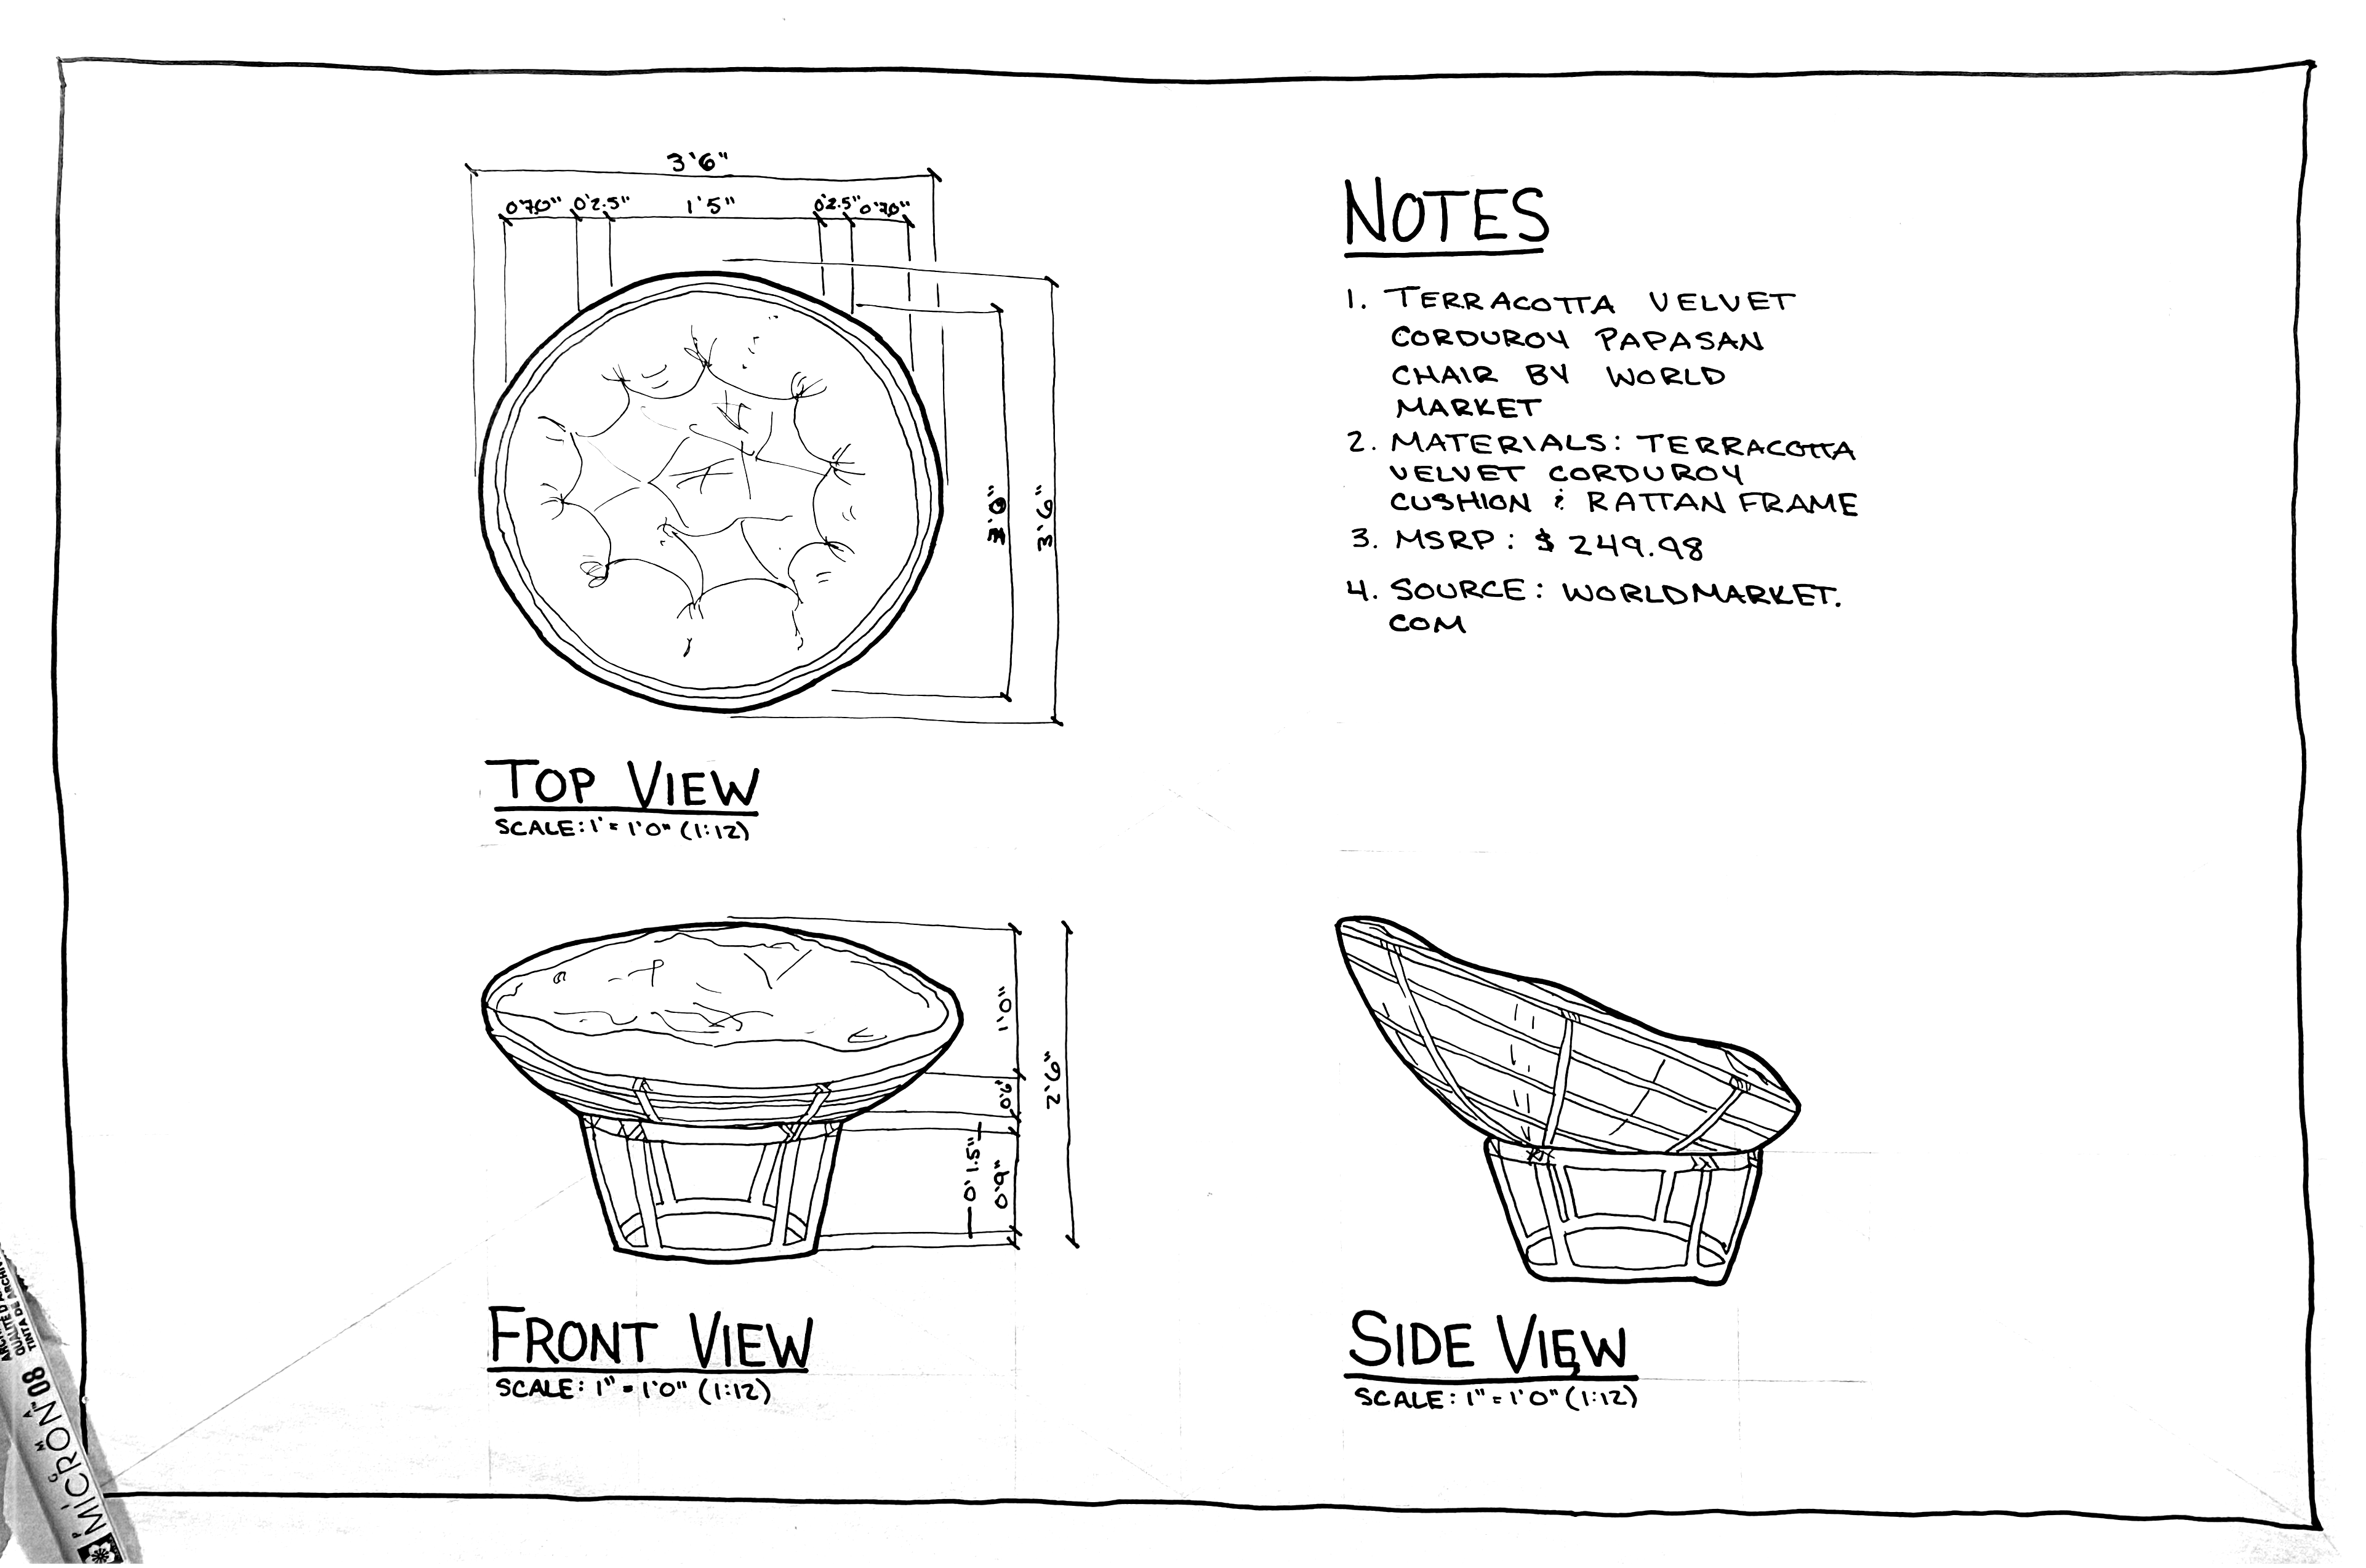 3'6"
0'7.0" 0'2.5" 1'5" 0'2.5" 0'7.0"
3'0"
3'6"
TOP VIEW
SCALE: 1' = 1'0" (1:12)
NOTES
1. TERRACOTTA VELVET
CORDUROY PAPASAN
CHAIR BY WORLD
MARKET
2. MATERIALS: TERRACOTTA
VELVET CORDUROY
CUSHION & RATTAN FRAME
3. MSRP: $ 249.98
4. SOURCE: WORLDMARKET.
COM
1'0"
0'6"
2'6"
0'1.5"
0'9"
FRONT VIEW
SCALE: 1" = 1'0" (1:12)
SIDE VIEW
SCALE: 1" = 1'0" (1:12)
MICRON 08